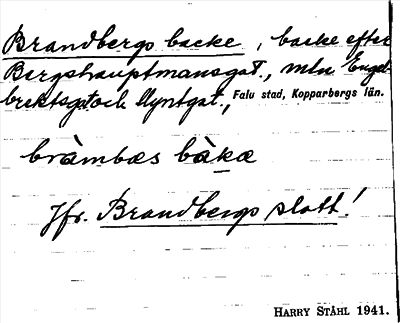 Brandbergs backe, backe efter
Bergshauptmansgat., mln Engel-
brektsg. och Myntgat., Falu stad, Kopparbergs län.
bràmbæs bàkæ
Jfr. Brandbergs slott!
HARRY STÅHL 1941.